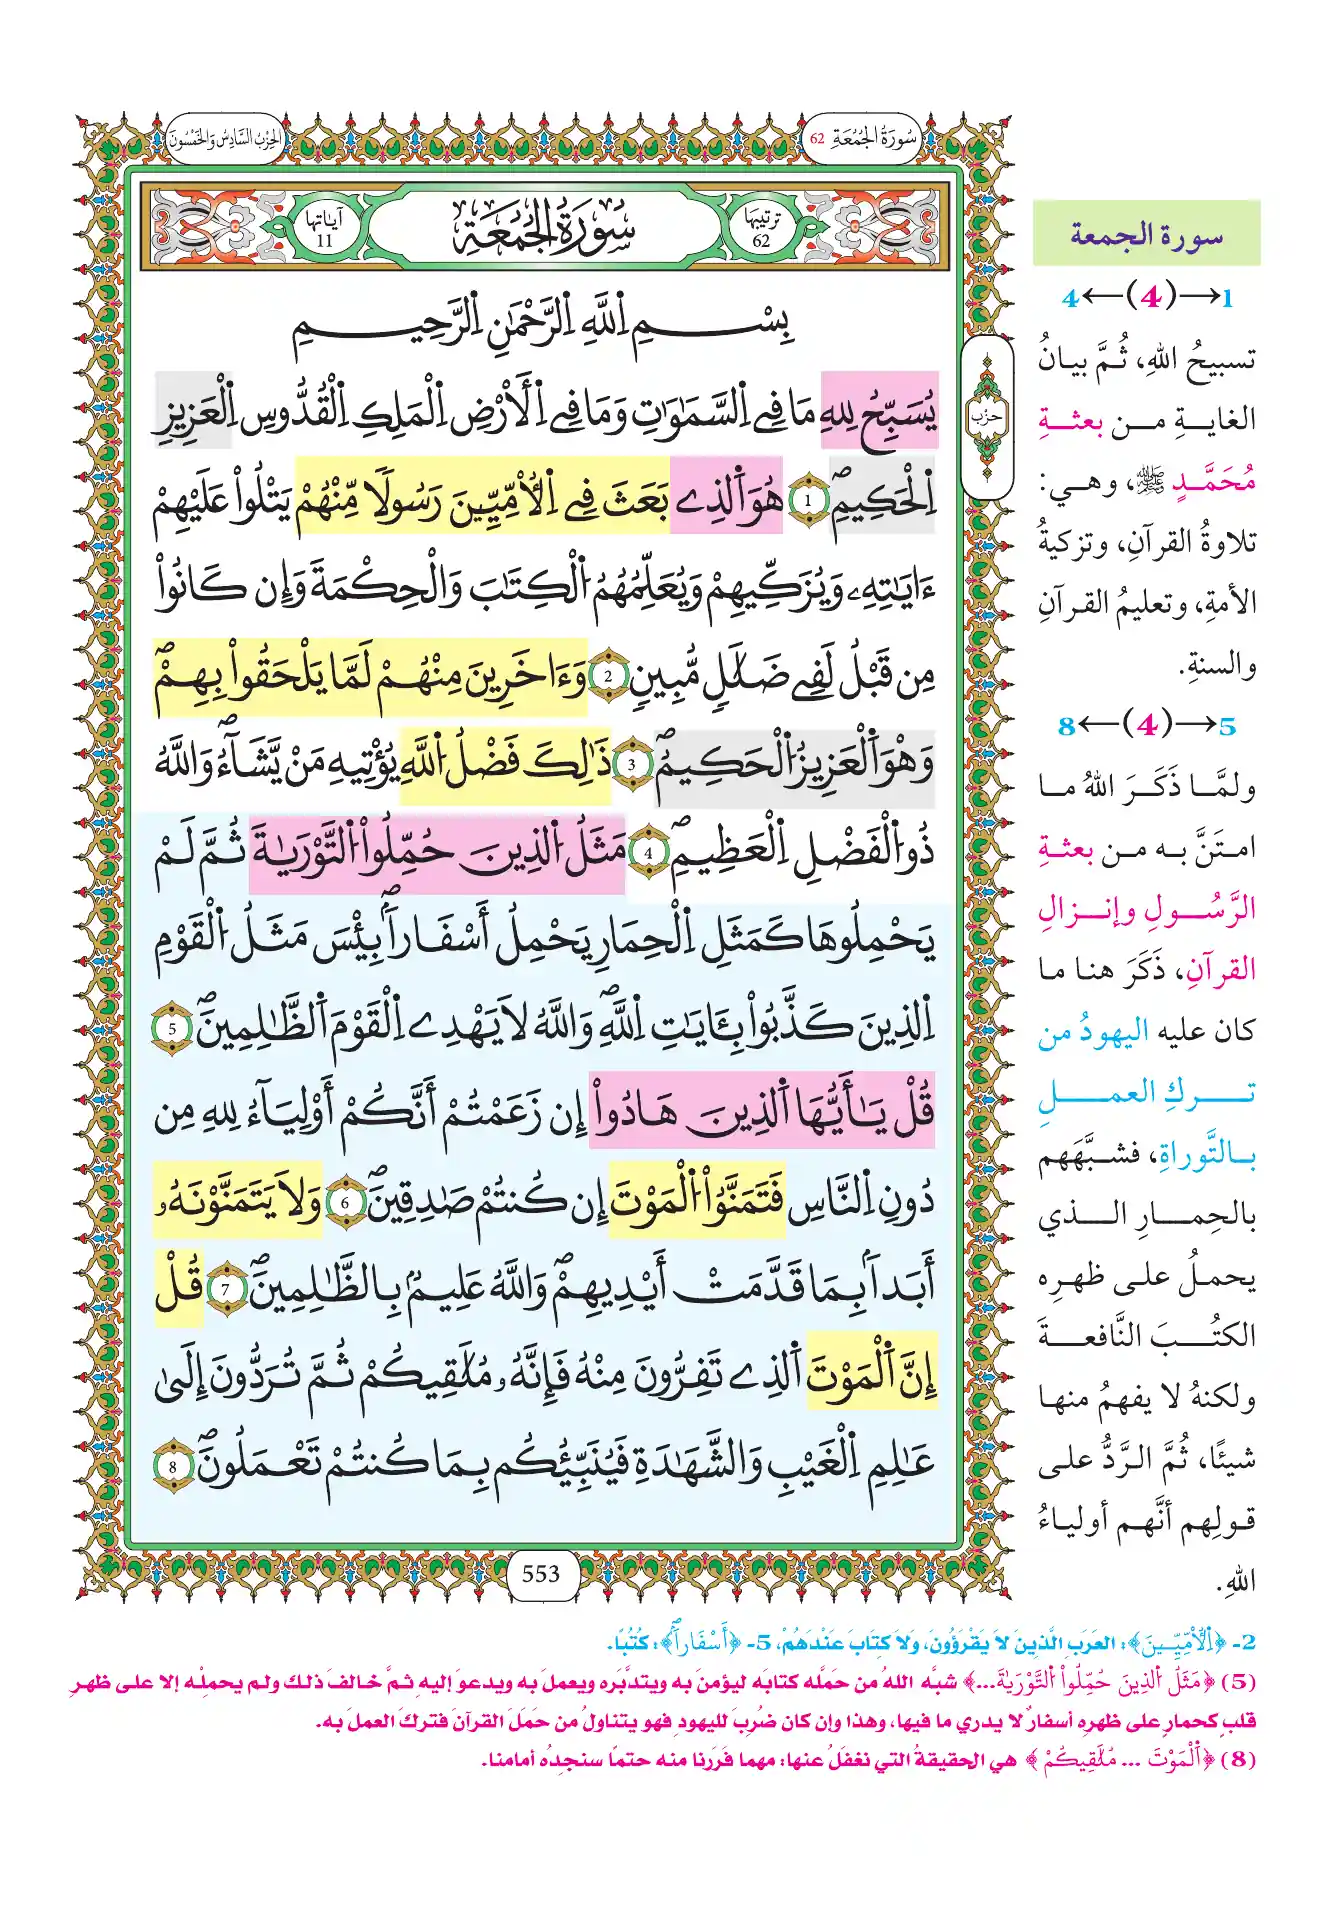 سُورَةُ الجُمُعَةِ 62
الحِزْبُ السَّادِسُ وَالخَمْسُونَ
ترتيبها 62
سُورَةُ الجُمُعَةِ
آياتها 11
بِسْمِ اِ۬للَّهِ اِ۬لرَّحْمَٰنِ اِ۬لرَّحِيمِ
يُسَبِّحُ لِلهِ مَا فِے اِ۬لسَّمَٰوَٰتِ وَمَا فِے اِ۬لْأَرْضِ اِ۬لْمَلِكِ اِ۬لْقُدُّوسِ اِ۬لْعَزِيزِ
اِ۬لْحَكِيمِۖ 1 هُوَ اَ۬لذِے بَعَثَ فِے اِ۬لْأُمِّيِّـۧنَ رَسُولاٗ مِّنْهُمْ يَتْلُواْ عَلَيْهِمْ
ءَايَٰتِهِۦ وَيُزَكِّيهِمْ وَيُعَلِّمُهُمُ اُ۬لْكِتَٰبَ وَالْحِكْمَةَ وَإِن كَانُواْ
مِن قَبْلُ لَفِے ضَلَٰلٖ مُّبِينٖ 2 وَءَاخَرِينَ مِنْهُمْ لَمَّا يَلْحَقُواْ بِهِمْۖ
وَهْوَ اَ۬لْعَزِيزُ اُ۬لْحَكِيمُۖ 3 ذَٰلِكَ فَضْلُ اُ۬للَّهِ يُؤْتِيهِ مَنْ يَّشَآءُۖ وَاللَّهُ
ذُو اُ۬لْفَضْلِ اِ۬لْعَظِيمِۖ 4 مَثَلُ اُ۬لذِينَ حُمِّلُواْ اُ۬لتَّوْرَىٰةَ ثُمَّ لَمْ
يَحْمِلُوهَا كَمَثَلِ اِ۬لْحِمَارِ يَحْمِلُ أَسْفَاراَۢۖ بِئْسَ مَثَلُ اُ۬لْقَوْمِ
اِ۬لذِينَ كَذَّبُواْ بِـَٔايَٰتِ اِ۬للَّهِۖ وَاللَّهُ لَا يَهْدِے اِ۬لْقَوْمَ اَ۬لظَّٰلِمِينَۖ 5
قُلْ يَٰٓأَيُّهَا اَ۬لذِينَ هَادُواْ إِن زَعَمْتُمْ أَنَّكُمْ أَوْلِيَآءُ لِلهِ مِن
دُونِ اِ۬لنَّاسِ فَتَمَنَّوُاْ اُ۬لْمَوْتَ إِن كُنتُمْ صَٰدِقِينَۖ 6 وَلَا يَتَمَنَّوْنَهُۥ
أَبَداَۢ بِمَا قَدَّمَتْ أَيْدِيهِمْۖ وَاللَّهُ عَلِيمُۢ بِالظَّٰلِمِينَۖ 7 قُلْ
إِنَّ اَ۬لْمَوْتَ اَ۬لذِے تَفِرُّونَ مِنْهُ فَإِنَّهُۥ مُلَٰقِيكُمْ ثُمَّ تُرَدُّونَ إِلَىٰ
عَٰلِمِ اِ۬لْغَيْبِ وَالشَّهَٰدَةِ فَيُنَبِّئُكُم بِمَا كُنتُمْ تَعْمَلُونَۖ 8
553
حزب
سورة الجمعة
1→(4)←4
تسبيحُ اللهِ، ثُمَّ بيانُ
الغايةِ من بعثةِ
مُحَمَّدٍ ﷺ، وهي:
تلاوةُ القرآنِ، وتزكيةُ
الأمةِ، وتعليمُ القرآنِ
والسنةِ.
5→(4)←8
ولمَّا ذَكَرَ اللهُ ما
امتَنَّ به من بعثةِ
الرَّسُولِ وإنزالِ
القرآنِ، ذَكَرَ هنا ما
كان عليه اليهودُ من
تركِ العملِ
بالتَّوراةِ، فشبَّهَهم
بالحِمارِ الذي
يحملُ على ظهرِه
الكتُبَ النَّافعةَ
ولكنهُ لا يفهمُ منها
شيئًا، ثُمَّ الرَّدُّ على
قولِهم أنَّهم أولياءُ
اللهِ.
2- ﴿اِ۬لْأُمِّيِّـۧنَ﴾: العَرَبِ الَّذِينَ لاَ يَقْرَؤُونَ، وَلاَ كِتَابَ عَنْدَهُمْ، 5- ﴿أَسْفَاراَۢۖ﴾: كُتُبًا.
(5) ﴿مَثَلُ اُ۬لذِينَ حُمِّلُواْ اُ۬لتَّوْرَىٰةَ...﴾ شبَّه اللهُ من حَمَّله كتابَه ليؤمنَ به ويتدبَّرَه ويعملَ به ويدعوَ إليهِ ثمَّ خالفَ ذلك ولم يحملْه إلا على ظهرِ
قلبٍ كحمارٍ على ظهرِه أسفارٌ لا يدري ما فيها، وهذا وإن كان ضُرِبَ لليهودِ فهو يتناولُ من حَمَلَ القرآنَ فتركَ العملَ به.
(8) ﴿اَ۬لْمَوْتَ ... مُلَٰقِيكُمْ﴾ هي الحقيقةُ التي نغفَلُ عنها: مهما فَرَرنا منه حتمًا سنجدُه أمامنا.